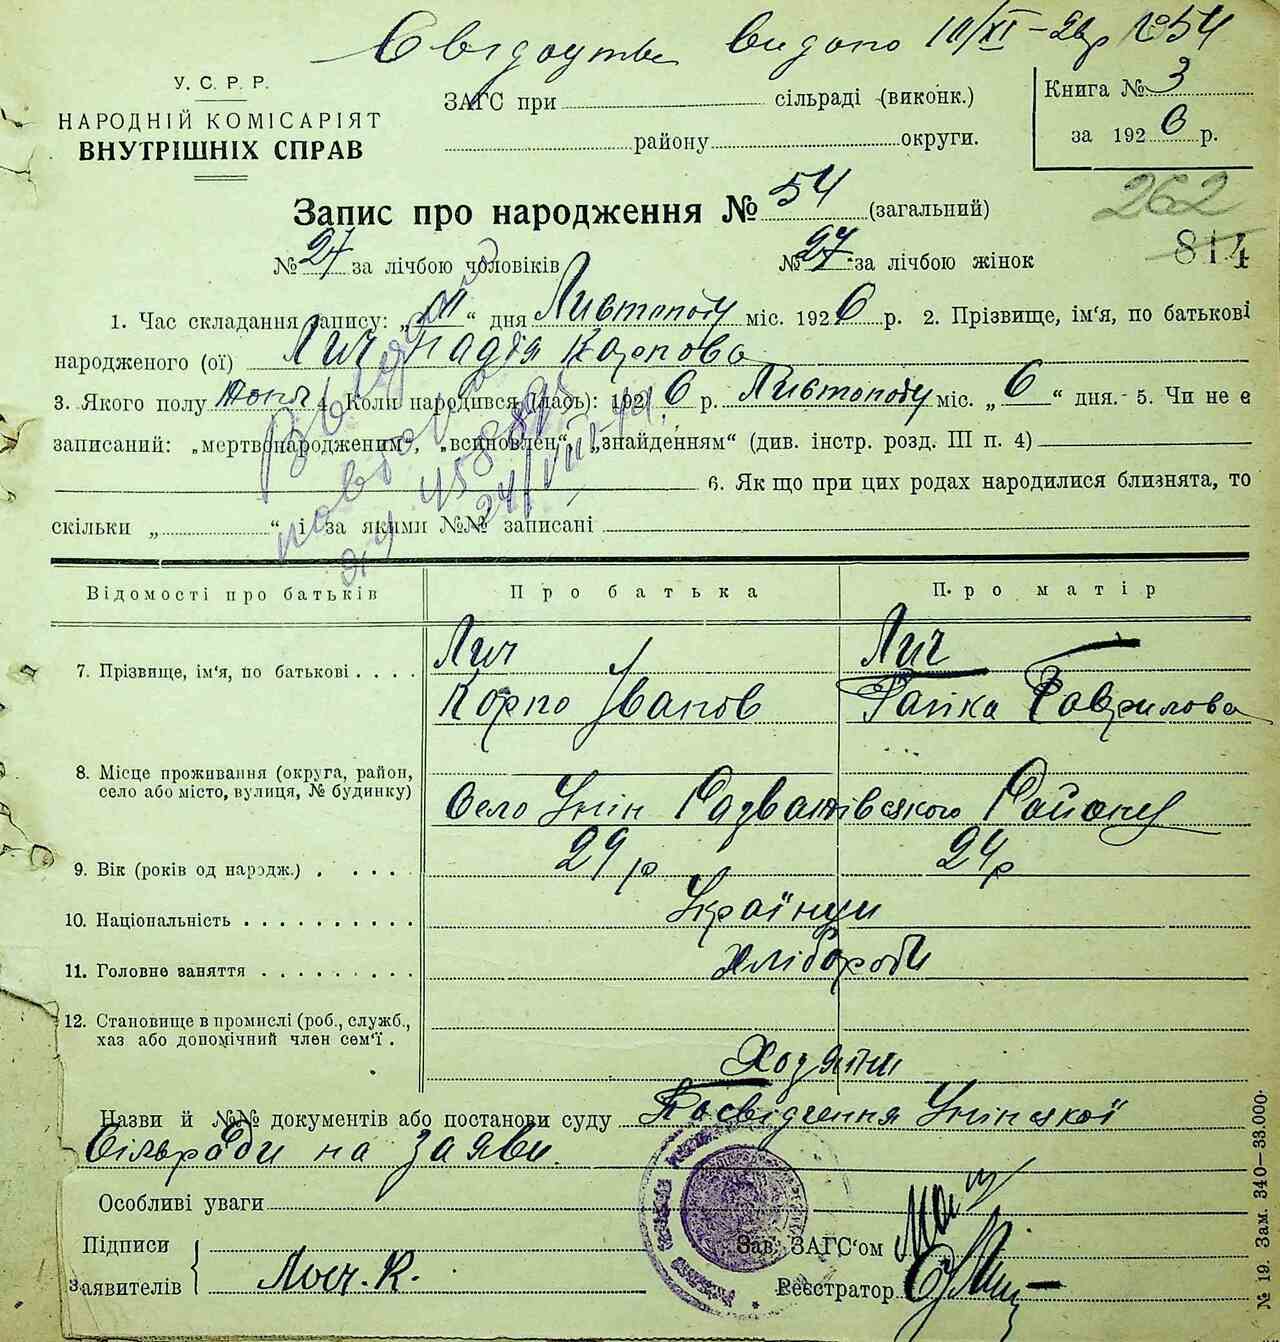 Свідоцтво видано 10/XI-26р №54
У. С. Р. Р.
НАРОДНІЙ КОМІСАРІЯТ
ВНУТРІШНІХ СПРАВ
ЗАГС при сільраді (виконк.)
району округи.
Книга № 3
за 1926 р.
262
814
Запис про народження № 54 (загальний)
№ 27 за лічбою чоловіків № 27 за лічбою жінок
1. Час складання запису: „ “ дня Листопаду міс. 1926 р. 2. Прізвище, ім'я, по батькові
народженого (ої) Лич Надія Карпова
3. Якого полу жоня 4. Коли народився (лась): 1926 р. Листопаду міс. „6“ дня. - 5. Чи не є
записаний: „мертвонародженим“, „всиновлен“, „знайденням“ (див. інстр. розд. III п. 4)
6. Як що при цих родах народилися близнята, то
скільки „ “ і за якими №№ записані
повторно
Відомості про батьків Про батька Про матір
7. Прізвище, ім'я, по батькові . . . . Лич Лич
Карпо Іванов Ганка Гаврилова
8. Місце проживання (округа, район,
село або місто, вулиця, № будинку) Село Унін Району
9. Вік (років од народж.) . . . . . 29 р 24 р
10. Національність . . . . . . . . . . Українци
11. Головне заняття . . . . . . . . . Хлібороби
12. Становище в промислі (роб., служб.,
хаз або допомічний член сем'ї .
Ходяїни
Назви й №№ документів або постанови суду Посвідчення Унінської
Сільради на заяви.
Особливі уваги
Підписи
заявителів Лич. К.
Зав. ЗАГС'ом
Реєстратор
№ 19. Зам. 340—33.000.